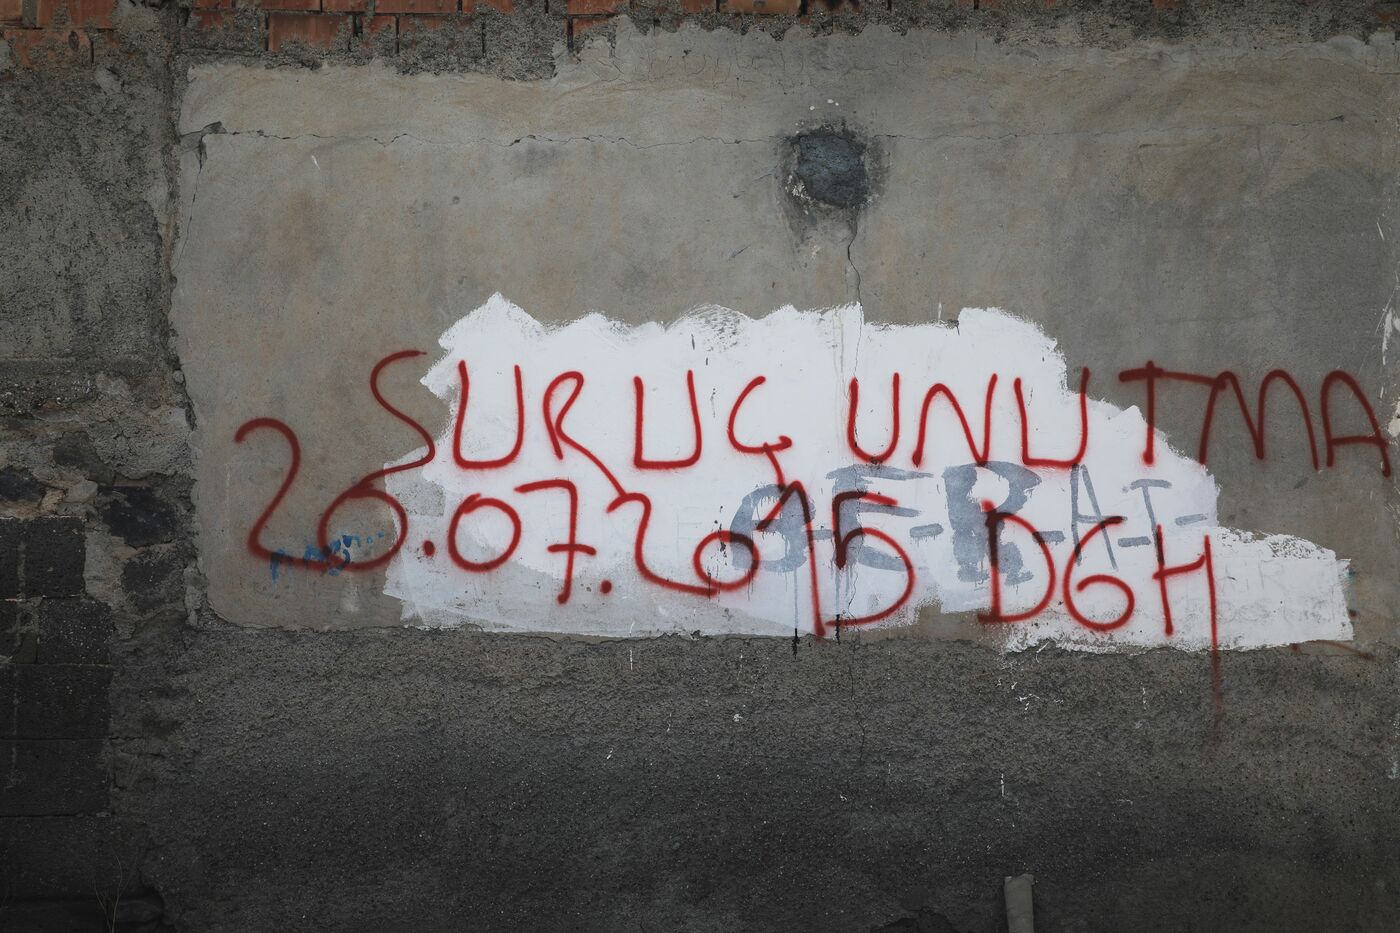 SURUÇ UNUTMA
20.07.2015 DGH